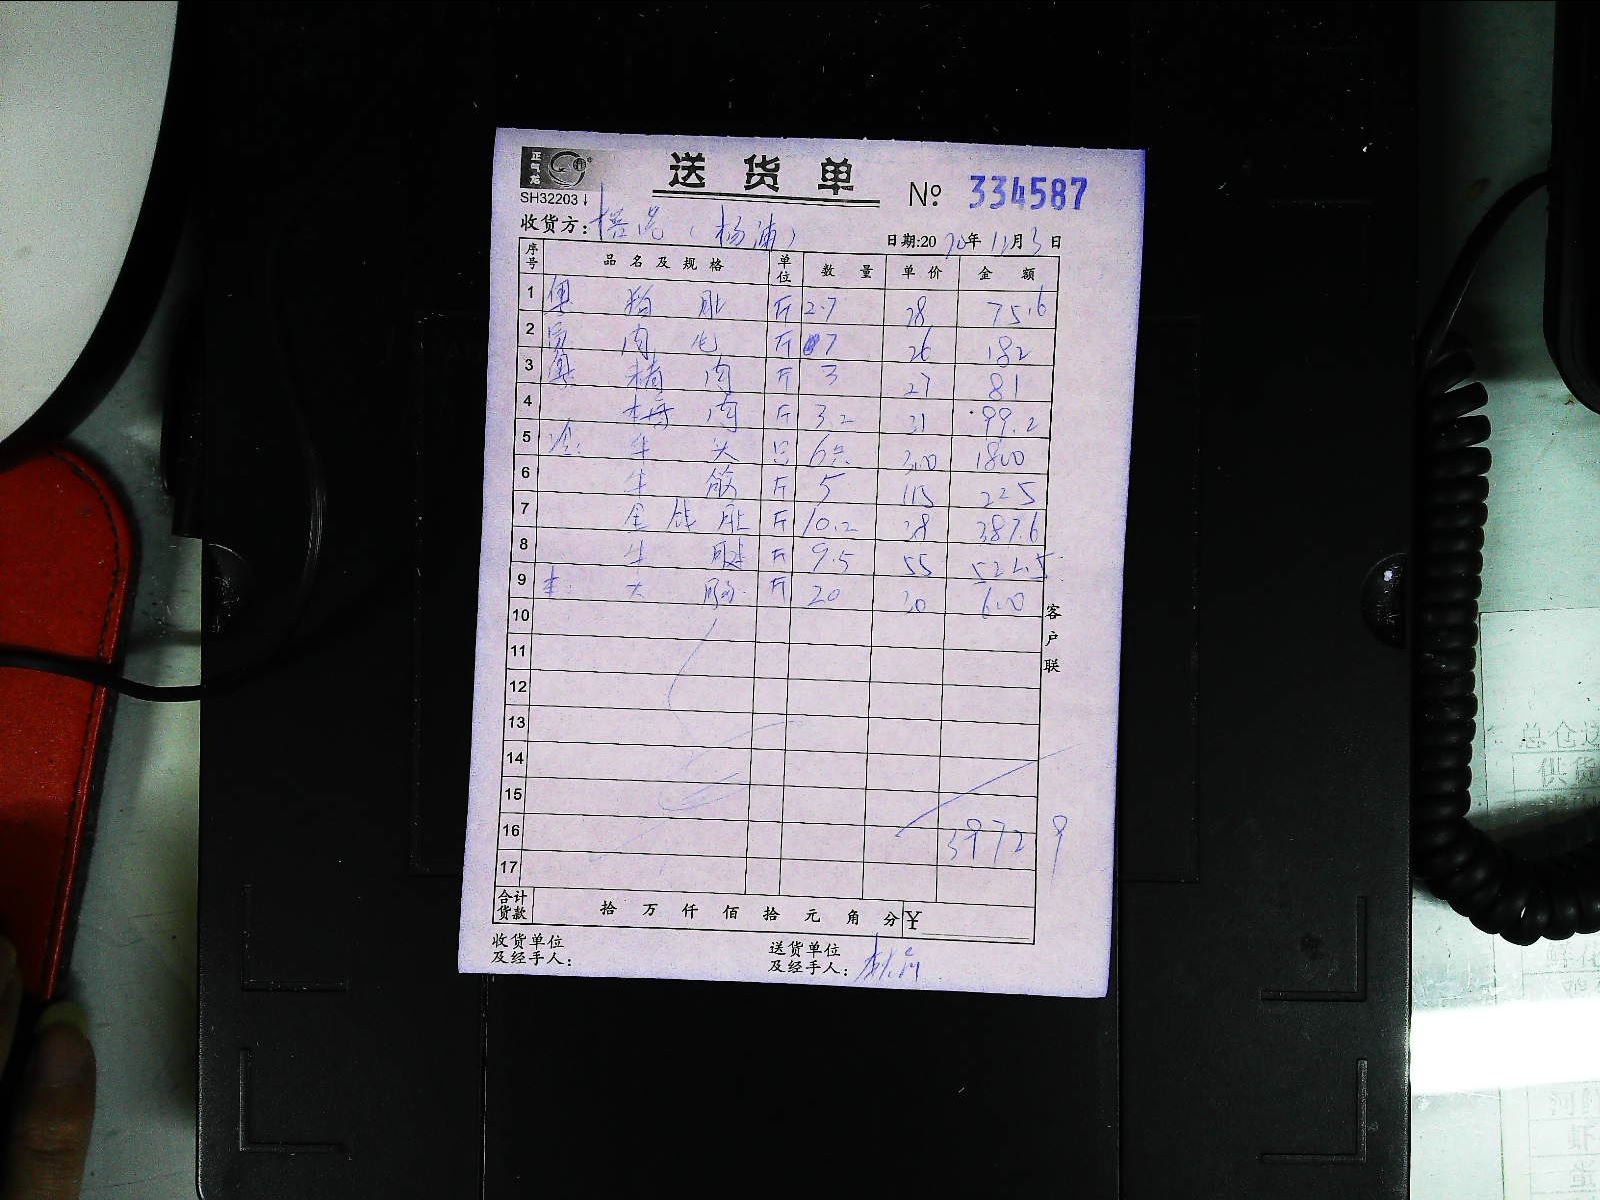 正气苑
送货单
№ 334587
SH32203↓
收货方: (杨浦)
日期:2020年12月3日
序号 品名及规格 单位 数量 单价 金额
1 斤 2.7 28 75.6
2 肉 斤 7 26 182
3 精肉 斤 3 27 81
4 梅肉 斤 3.2 31 99.2
5 冷: 牛头 只 6只 300 1800
6 牛 斤 5 225
7 金钱肚 斤 10.2 38 387.6
8 牛腱 斤 9.5 55 522.5
9 大肠 斤 20 30 600
10
11
12
13
14
15
16 3972 9
17
客户联
合计货款 拾万仟佰拾元角分 ¥
收货单位及经手人:
送货单位及经手人:
总仓
供货